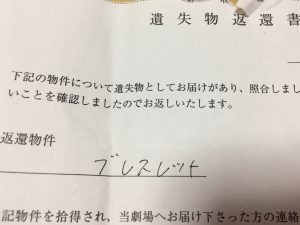 遺失物返還書
下記の物件について遺失物としてお届けがあり、照合しまし
いことを確認しましたのでお返しいたします。
返還物件
ブレスレット
記物件を拾得され、当劇場へお届け下さった方の連絡